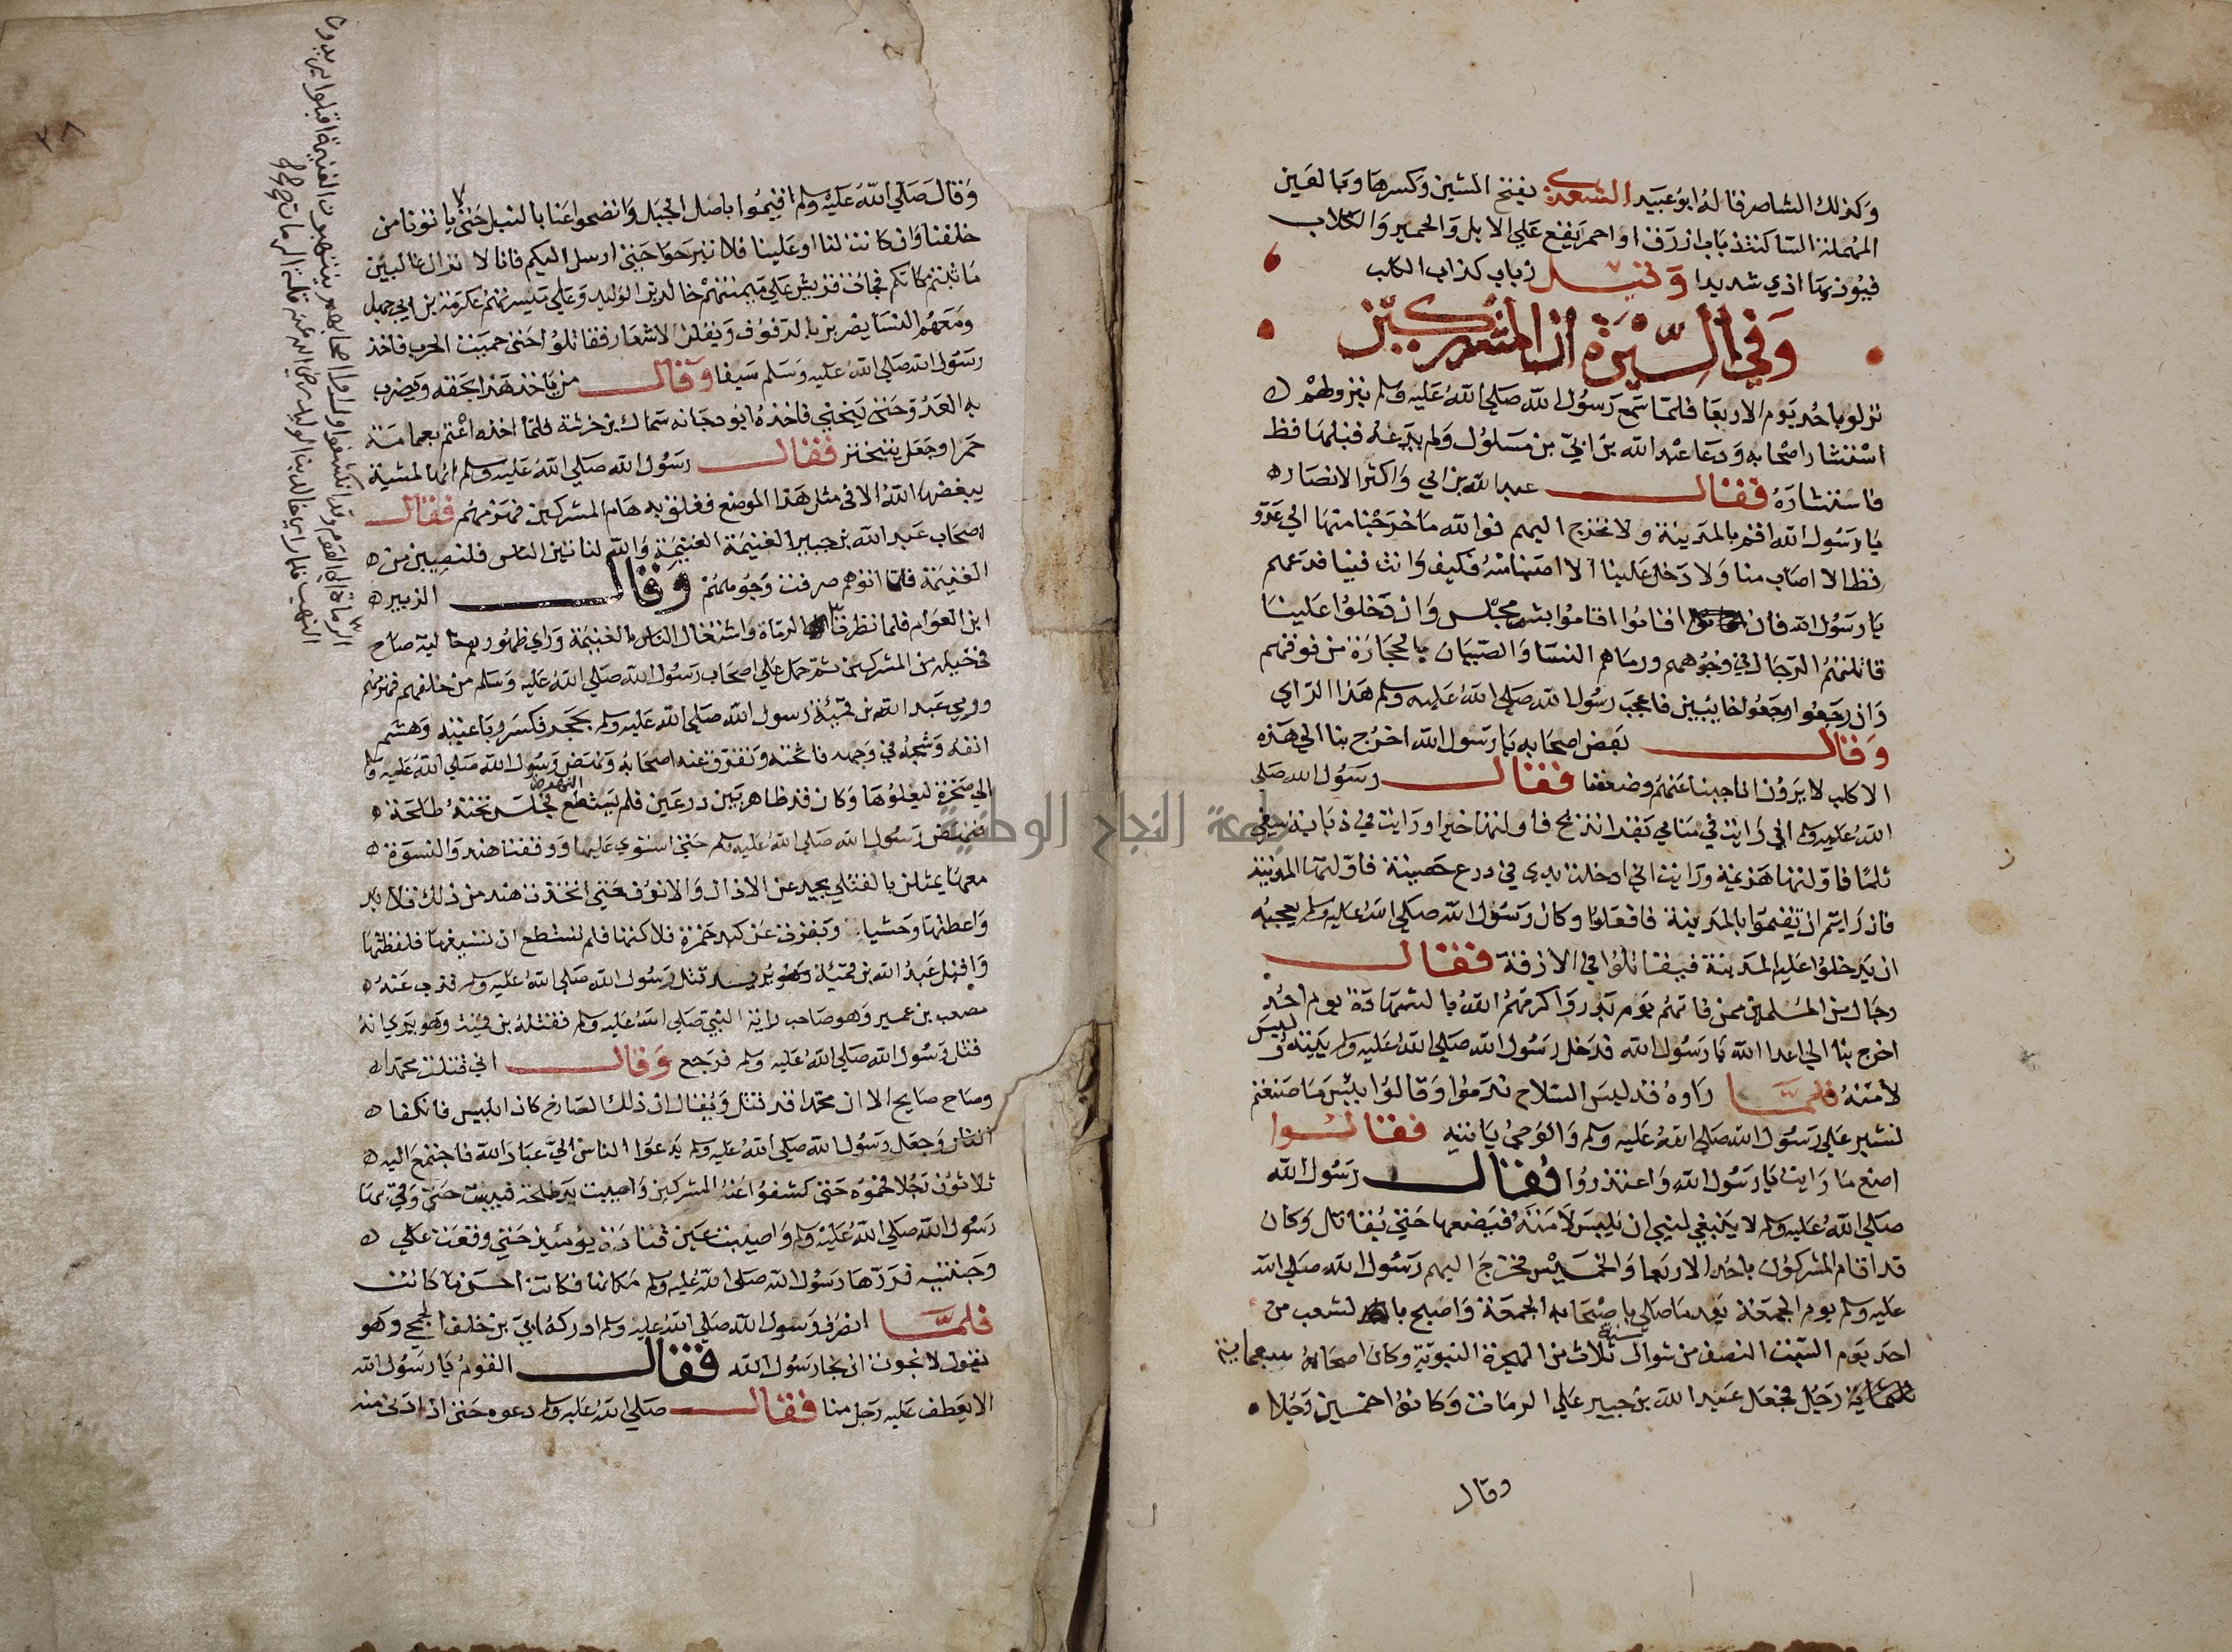 وكذلك الشاصر قاله ابو عبيد الشعرى بفتح الشين وكسرها وبالعين
المهملة الساكنة ذباب ازرق او احمر يقع علي الابل والحمير والكلاب
فيوذيها اذي شديدا وقيل ذباب كذاب الكلب
وفي السيرة ان المشركين
نزلو باحد يوم الاربعا فلما سمع رسول الله صلي الله عليه وسلم بنزولهم
استشار اصحابه ودعا عبد الله بن ابي بن سلول ولم يدعه قبلها قط
فاستشاره فقال عبد الله بن ابي واكثر الانصار
يا رسول الله اقم بالمدينة ولا تخرج اليهم فوالله ما خرجنا منها الي عدو
قط الا اصاب منا ولا دخل علينا الا اصبنا منه فكيف وانت فينا فدعهم
يا رسول الله فان اقاموا اقاموا بشر مجلس وان دخلوا علينا
قاتلتهم الرجال في وجوههم ورماهم النسا والصبيان بالحجارة من فوقهم
وان رجعوا رجعوا خايبين فاعجب رسول الله صلي الله عليه وسلم هذا الراي
وقال بعض اصحابه يا رسول الله اخرج بنا الي هذه
الاكلب لا يرون انا جبنا عنهم وضعفنا فقال رسول الله صلي
الله عليه وسلم اني رايت في منامي بقرا تذبح فاولتها خيرا ورايت في ذبابة سيفي
ثلما فاولتها هزيمة ورايت اني ادخلت يدي في درع حصينة فاولتها المدينة
فان رايتم ان تقيموا بالمدينة فافعلوا وكان رسول الله صلي الله عليه وسلم يعجبه
ان يدخلوا عليه المدينة فيقاتلوا في الازقة فقال
رجال من المسلمين ممن فاتهم يوم بدر واكرمهم الله بالشهادة يوم احد
اخرج بنا الي اعدا الله يا رسول الله فدخل رسول الله صلي الله عليه وسلم بيته لبس
لامته فلما راوه قد لبس السلاح ندموا وقالوا بيس ما صنعتم
نشير علي رسول الله صلي الله عليه وسلم والوحي ياتيه فقالوا
اصنع ما رايت يا رسول الله واعتذروا فقال رسول الله
صلي الله عليه وسلم لا ينبغي لنبي ان يلبس لامته فيضعها حتي يقاتل وكان
قد اقام المشركون باحد الاربعا والخميس فخرج اليهم رسول الله صلي الله
عليه وسلم يوم الجمعة بعد ما صلي باصحابه الجمعة واصبح بالشعب من
احد يوم السبت النصف من شوال سنة ثلاث من الهجرة النبوية وكان اصحابه سبعماية
رجل فجعل عبد الله بن جبير علي الرماة وكانوا خمسين رجلا
وقال
٣٨
وقال صلي الله عليه وسلم اقيموا باصل الجبل وانضحوا عنا بالنبل حتي لا ياتونا من
خلفنا وان كانت لنا او علينا فلا تبرحوا حتي ارسل اليكم فانا لا نزال غالبين
ما ثبتم مكانكم فجات قريش علي ميمنتهم خالد بن الوليد وعلي ميسرتهم عكرمة بن ابي جهل
ومعهم النسا يضربن بالدفوف ويقلن الاشعار فقاتلوا حتي حميت الحرب فاخذ
رسول الله صلي الله عليه وسلم سيفا وقال من ياخذ هذا بحقه ويضرب
به العدو حتي ينحني فاخذه ابو دجانه سماك بن خرشة فلما اخذه اعتم بعمامة
حمرا وجعل يتبختر فقال رسول الله صلي الله عليه وسلم انها لمشية
يبغضها الله الا في مثل هذا الموضع ففلق به هام المشركين فهزمهم فقال
اصحاب عبد الله بن جبير الغنيمة الغنيمة والله لناتين الناس فلنصيبن من
الغنيمة فلما اتوهم صرفت وجوههم وقال الزبير
ابن العوام فلما نظر الرماة واشتغال الناس بالغنيمة وراي ظهورهم خالية صاح
في خيله من المشركين ثم حمل علي اصحاب رسول الله صلي الله عليه وسلم من خلفهم فهزمهم
ورمي عبد الله بن قميئة رسول الله صلي الله عليه وسلم بحجر فكسر رباعيته وهشم
انفه وشجه في وجهه فاثخنه وتفرق عنه اصحابه ونهض رسول الله صلي الله عليه وسلم
الي صخرة ليعلوها وكان قد ظاهر بين درعين فلم يستطع النهوض فجلس تحته طلحة
فنهض رسول الله صلي الله عليه وسلم حتي استوي عليها ووقفت هند والنسوة
معها يمثلن بالقتلي يجدعن الاذان والانوف حتي اتخذت هند من ذلك قلايد
واعطتها وحشيا وبقرت عن كبد حمزة فلاكتها فلم تستطع ان تسيغها فلفظتها
واقبل عبد الله بن قميئة وهو يريد قتل رسول الله صلي الله عليه وسلم فذب عنه
مصعب بن عمير وهو صاحب راية النبي صلي الله عليه وسلم فقتله بن قميئة وهو يري انه
قتل رسول الله صلي الله عليه وسلم فرجع وقال اني قتلت محمدا
وصاح صايح الا ان محمدا قد قتل ويقال ان ذلك الصارخ كان ابليس فانكفا
الناس وجعل رسول الله صلي الله عليه وسلم يدعوا الناس الي عباد الله فاجتمع اليه
ثلاثون رجلا فحموه حتي كشفوا عنه المشركين واصيبت يد طلحة فيبست حين وقي بها
رسول الله صلي الله عليه وسلم واصيبت عين قتادة يومئيذ حتي وقعت علي
وجنتيه فردها رسول الله صلي الله عليه وسلم مكانها فكانت احسن ما كانت
فلما انصرف رسول الله صلي الله عليه وسلم ادركه ابي بن خلف الجمحي وهو
يقول لا نجوت ان نجا رسول الله فقال القوم يا رسول الله
الا يعطف عليه رجل منا فقال صلي الله عليه وسلم دعوه حتي اذا دني منه
جامعة النجاح الوطنية